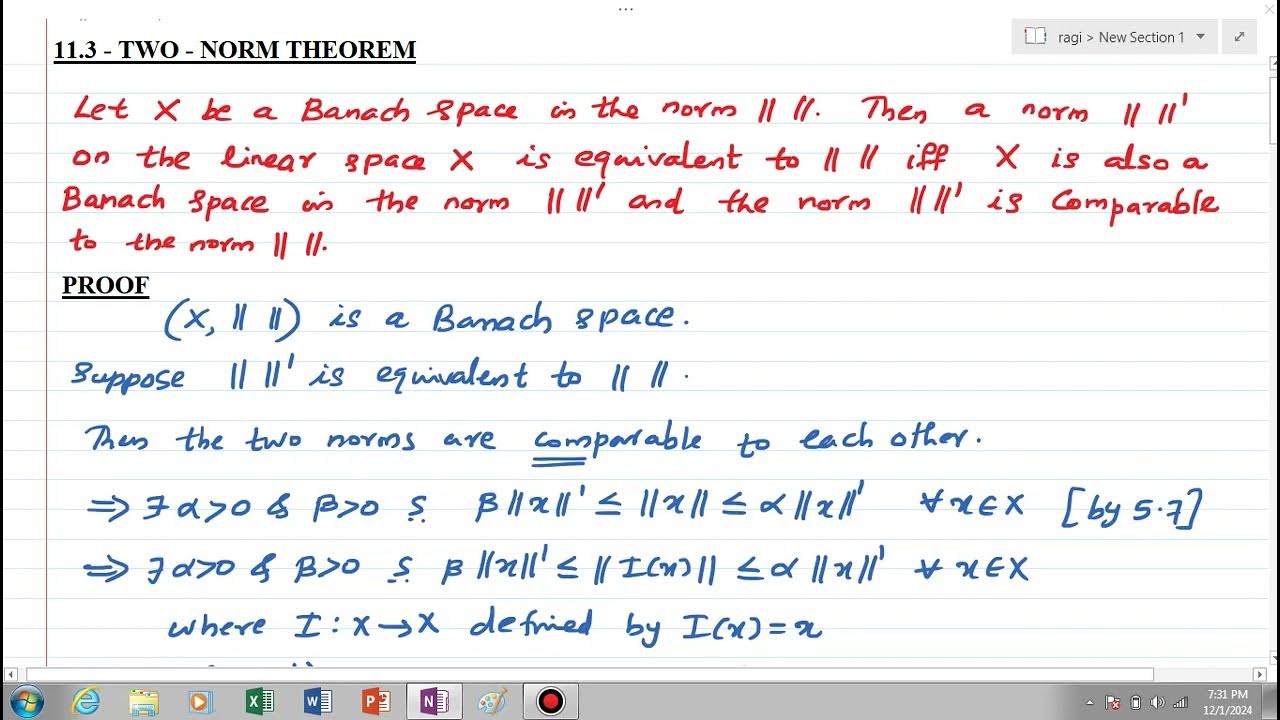 11.3 - TWO - NORM THEOREM
ragi > New Section 1
Let X be a Banach space in the norm || ||. Then a norm || ||'
on the linear space X is equivalent to || || iff X is also a
Banach space in the norm || ||' and the norm || ||' is comparable
to the norm || ||.
PROOF
(X, || ||) is a Banach space.
Suppose || ||' is equivalent to || ||.
Then the two norms are comparable to each other.
⇒ ∃ α>0 & β>0 ∋ β||x||' ≤ ||x|| ≤ α||x||' ∀ x∈X [by 5.7]
⇒ ∃ α>0 & β>0 ∋ β||x||' ≤ ||I(x)|| ≤ α||x||' ∀ x∈X
where I : X→X defined by I(x)=x
7:31 PM
12/1/2024